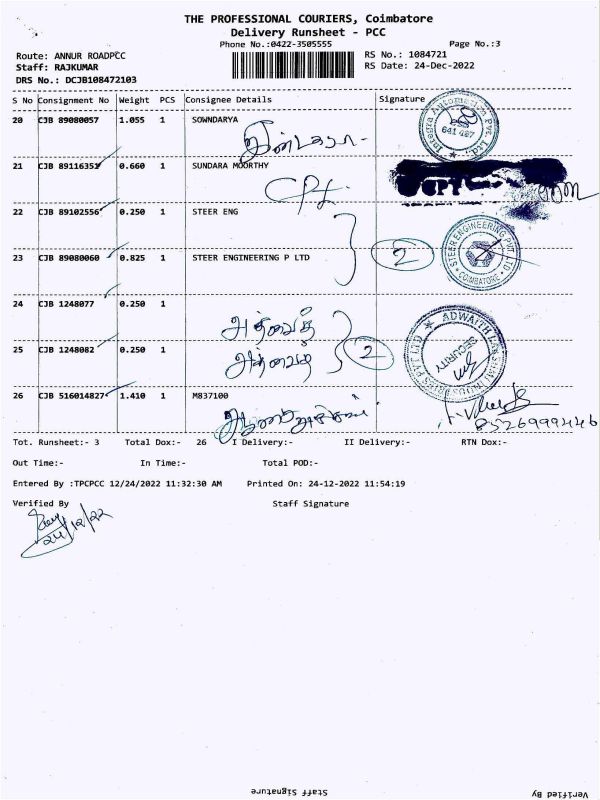 THE PROFESSIONAL COURIERS, Coimbatore
Delivery Runsheet - PCC
Phone No.:0422-3505555
Page No.:3
Route: ANNUR ROADPCC
RS No.: 1084721
Staff: RAJKUMAR
RS Date: 24-Dec-2022
DRS No.: DCJB108472103
S No Consignment No Weight PCS Consignee Details Signature
20 CJB 89080057 1.055 1 SOWNDARYA
Integra Automation Pvt. Ltd.
641 407
21 CJB 89116351 0.660 1 SUNDARA MOORTHY
22 CJB 89102556 0.250 1 STEER ENG
2
STEER ENGINEERING PVT LTD
COIMBATORE
23 CJB 89080060 0.825 1 STEER ENGINEERING P LTD
24 CJB 1248077 0.250 1
அத்வைத்
25 CJB 1248082 0.250 1
அத்வைத்
2
SECURITY
26 CJB 516014827 1.410 1 M837100
8526999446
Tot. Runsheet:- 3 Total Dox:- 26 I Delivery:- II Delivery:- RTN Dox:-
Out Time:- In Time:- Total POD:-
Entered By :TPCPCC 12/24/2022 11:32:30 AM Printed On: 24-12-2022 11:54:19
Verified By Staff Signature
24/12/22
Staff Signature Verified By